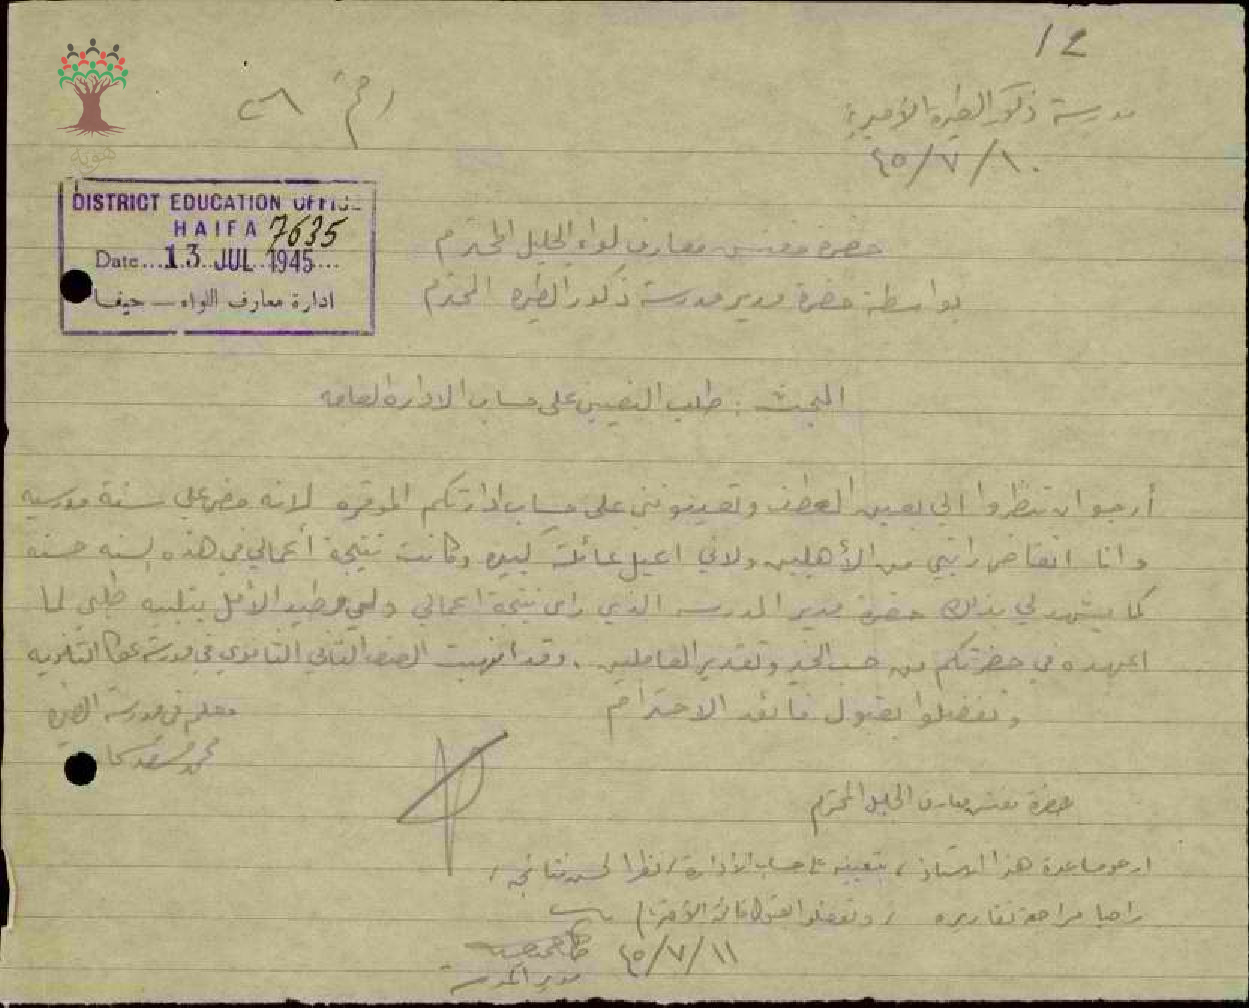 12
مدرسة ذكور الطيرة الأميرية
١٠/٧/٤٥
هوية
DISTRICT EDUCATION OFFICE
HAIFA 7635
Date...13 JUL 1945....
ادارة معارف اللواء — حيفا
حضرة مفتش معارف لواء الجليل المحترم
بواسطة حضرة مدير مدرسة ذكور الطيره المحترم
المبحث : طلب التعيين على حساب الادارة العامه
أرجو ان تنظروا الي بعين العطف وتعينونني على حساب ادارتكم الموقره لانه مضى علي سنة مدرسيه
وانا اتقاضى راتبي من الأهلين ولاني اعيل عائلة كبيره وكانت نتيجة أعمالي في هذه السنه حسنه
كما يشهد لي بذلك حضرة مدير المدرسه الذي رأى نتيجة اعمالي ولي وطيد الأمل بتلبيه طلبي لما
اعهده في حضرتكم من حب الخير وتقدير العاملين . وقد انهيت الصف الثاني الثانوي في مدرسة عكا الثانويه
وتفضلوا بقبول فائق الاحترام
معلم في مدرسة الطيره
محمد
حضرة مفتش معارف الجليل المحترم
ارجو مساعدة هذا الاستاذ ، بتعيينه على حساب الادارة ، نظرا لحسن نتائجه ،
راجيا مراجعة تقاريره ، وتفضلوا بقبول فائق الاحترام
١١/٧/٤٥
مدير المدرسة